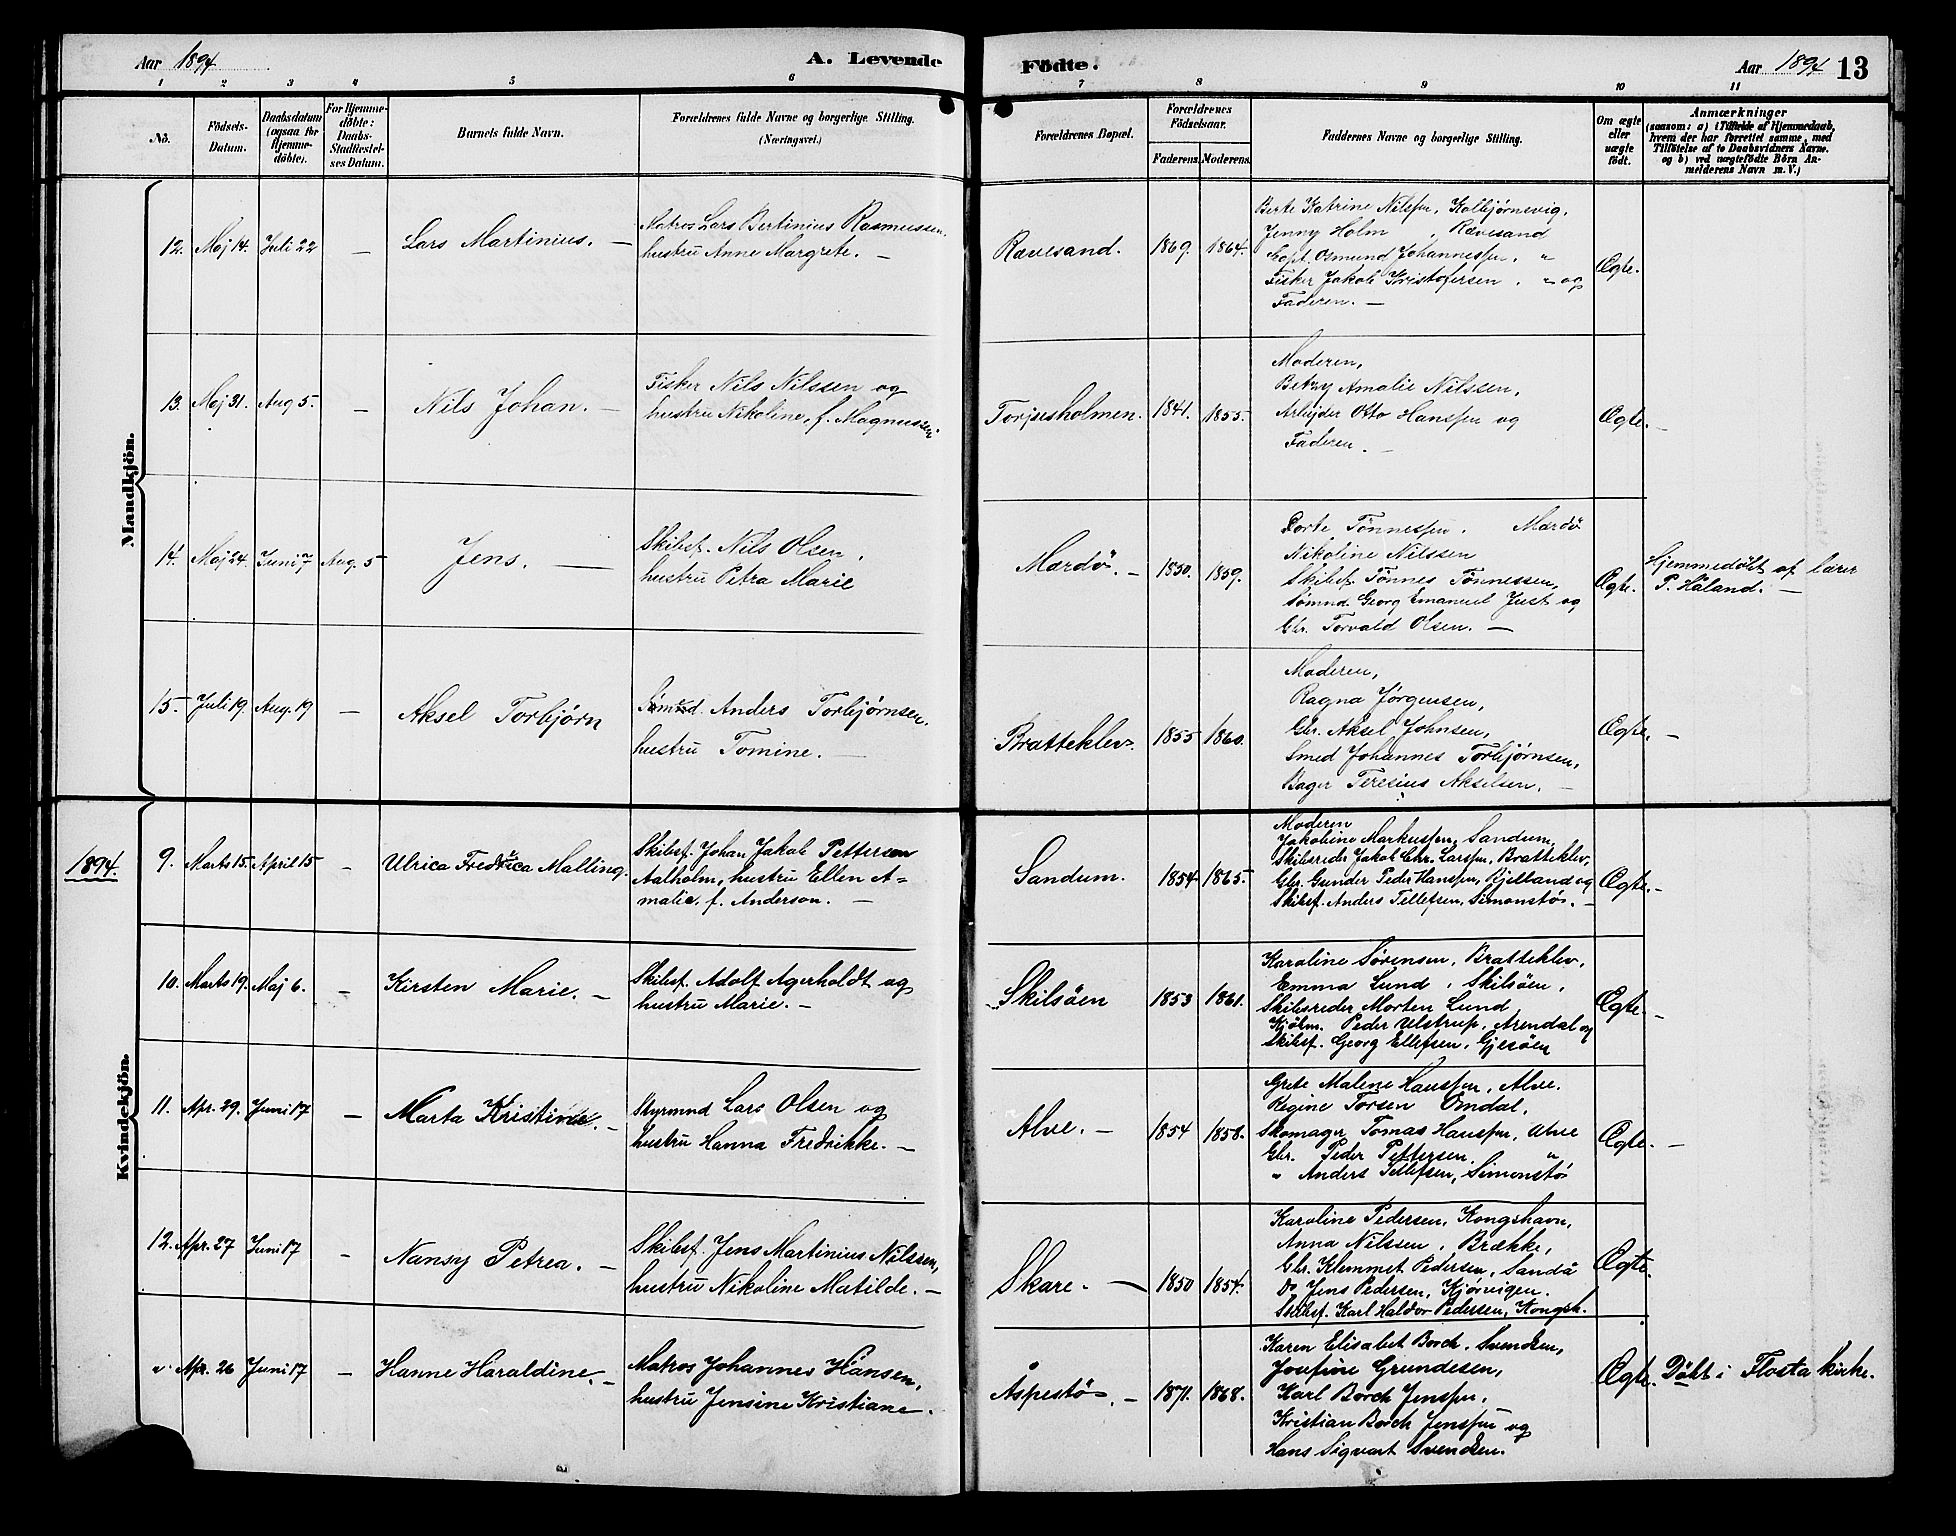 Aar 1894
A. Levende
Fødte.
Aar 1894 13
1 2 3 4 5 6 7 8 9 10 11
No.
Födsels-
Datum.
Daabsdatum
(ogsaa for
Hjemme-
döbte).
For Hjemme-
döbte:
Daabs-
Stadfæstel-
ses Datum.
Barnets fulde Navn.
Forældrenes fulde Navne og borgerlige Stilling.
(Næringsvei.)
Forældrenes Bopæl.
Forældrenes
Födselsaar.
Faderens. Moderens.
Faddernes Navne og borgerlige Stilling.
Om ægte
eller
uægte
födt.
Anmærkninger
(saasom: a) i Tilfælde af Hjemmedaab,
hvem der har forrettet samme, med
Tilföielse af to Daabsvidners Navne,
og b) ved uægtefödte Börn An-
melderens Navn m. V.)
Mandkjön.
12. Maj 14. Juli 22 — Lars Martinius. —
Matros Lars Bertinius Rasmussen.
hustru Anne Margrete. —
Ravesand. 1869. 1864.
Berte Katrine Nilssen, Kolbjørnsvig,
Jenny Holm , Rævesand
Capt. Osmund Johannessen, "
Fisker Jakob Kristofersen , " og
Faderen. —
Ægte.
13. Maj 31. Aug 5. — Nils Johan. —
Fisker Nils Nilssen og
hustru Nikoline, f. Magnussen.
Torjusholmen. 1841. 1855.
Moderen,
Betzy Amalie Nilssen,
Arbejder Otto Hanssen og
Faderen. —
Ægte. —
14. Maj 24. Juni 7 Aug. 5 Jens. —
Skibsf. Nils Olsen,
hustru Petra Marie
Mærdö. — 1850. 1859.
Dorte Tönnessen. Mærdö
Nikoline Nilssen
Skibsf. Tönnes Tönnessen,
Sømnd. Georg Emanuel Just og
Gbr. Torvald Olsen. —
Ægte.
Hjemmedöbt af lærer
P. Håland. —
15. Juli 19. Aug. 19 — Aksel Torbjørn
Sømnd. Anders Torbjørnsen.
hustru Tomine. —
Bratteklev. 1855 1860.
Moderen,
Ragna Jørgensen,
Gbr. Aksel Johnsen,
Smed Johannes Torbjørnsen,
Bager Teresius Akselsen. —
Ægte. —
1894.
Kvindekjön.
9. Marts 15. April 15 — Ulrica Fredrica Malling.
Skibsf. Johan Jakob Petterson
Aalholm, hustru Ellen A=
malie, f. Anderson. —
Sandum. 1854 1865.
Moderen
Jakobine Markussen, Sandum,
Skibsreder Jakob Chr. Larssen, Bratteklev,
Gbr. Gunder Peder Hanssen, Bjelland og
Skibsf. Anders Tellefsen, Simonstø. —
Ægte. —
10. Marts 19. Maj 6. — Kirsten Marie. —
Skibsf. Adolf Agerholdt og
hustru Marie. —
Skilsöen 1853 1861.
Karoline Sørensen, Bratteklev,
Emma Lund , Skilsöen,
Skibsreder Morten Lund
Kjølm. Peder Ulstrup, Arendal og
Skibsf. Georg Ellefsen, Gjesöen
Ægte. —
11. Apr. 29. Juni 17 — Marta Kristine. —
Styrmnd Lars Olsen og
hustru Hanna Fredrikke. —
Alve. — 1854 1858.
Grete Malene Hanssen, Alve.
Regine Torsen Omdal,
Skomager Tomas Hanssen, Alve
Gbr. Peder Pettersen "
" Anders Tellefsen, Simonstö
Ægte. —
12. Apr. 27 Juni 17 — Nansy Petrea. —
Skibsf. Jens Martinius Nilssen,
hustru Nikoline Matilde. —
Skare. — 1850 1854.
Karoline Pedersen, Kongshavn,
Anna Nilssen, Brække,
Gbr. Klemmet Pedersen, Sandå
Do Jens Pedersen, Kjørvigen.
Skibsf. Karl Haldor Pedersen, Kongsh.
Ægte.
" Apr. 26 Juni 17 — Hanne Haraldine. —
Matros Johannes Hansen,
hustru Jensine Kristiane.
Åspestö. — 1871. 1868.
Karen Elisabet Borch. Svendsen,
Josefine Grundesen,
Karl Borch Jenssen,
Kristian Borch Jenssen og
Hans Sigvart Svendsen.
Ægte.
Döbt i Flosta kirke.